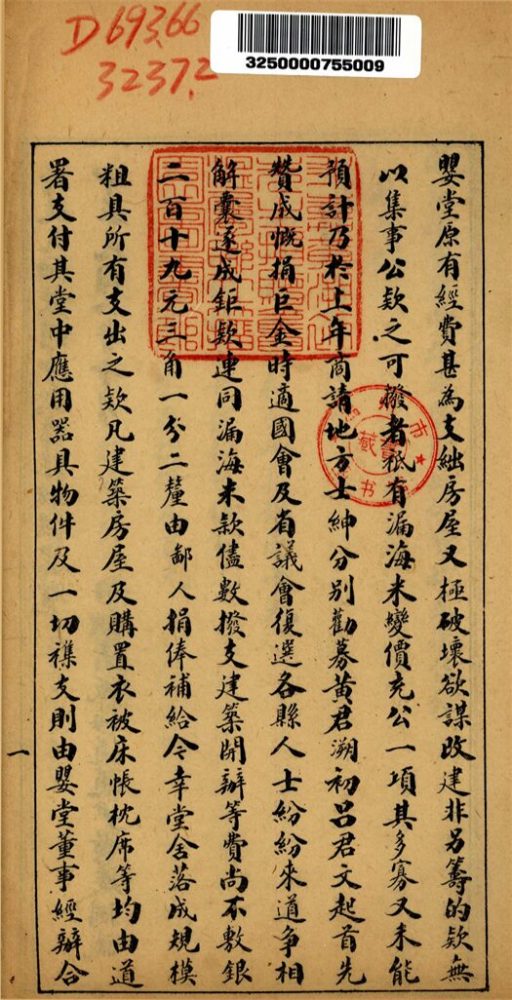 D693.66
3237.2
3250000755009
嬰堂原有經費甚為支絀房屋又極破壞欲謀改建非另籌的欵無
以集事公欵之可撥者祇有漏海米變價充公一項其多寡又未能
預計乃於上年商請地方士紳分別勸募黃君溯初呂君文起首先
贊成慨捐巨金時適國會及省議會復選各縣人士紛紛來道爭相
解囊遂成鉅欵連同漏海米欵儘數撥支建築開辦等費尚不敷銀
二百十九元三角一分二釐由鄙人捐俸補給今幸堂舍落成規模
粗具所有支出之欵凡建築房屋及購置衣被床帳枕席等均由道
署支付其堂中應用器具物件及一切襍支則由嬰堂董事經辦合
一